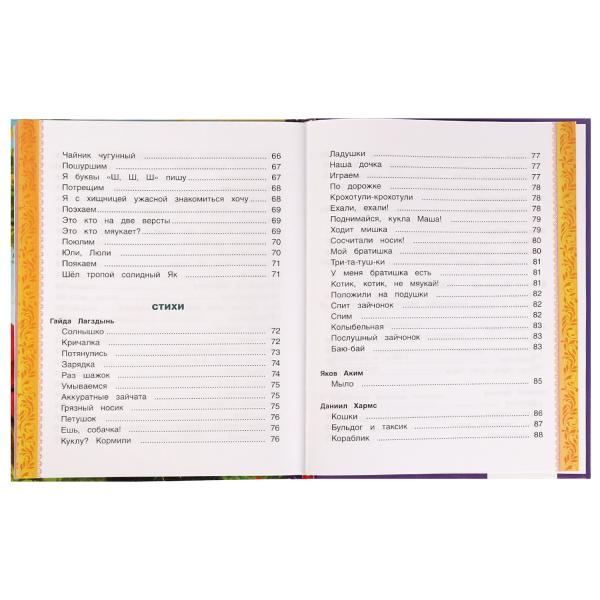 Чайник чугунный 66
Пошуршим 67
Я буквы «Ш, Ш, Ш» пишу 67
Потрещим 68
Я с хищницей ужасной знакомиться хочу 68
Поэхаем 69
Это кто на две версты 69
Это кто мяукает? 69
Поюлим 70
Юли, Люли 70
Поякаем 71
Шёл тропой солидный Як 71
СТИХИ
Гайда Лагздынь
Солнышко 72
Кричалка 72
Потянулись 73
Зарядка 74
Раз шажок 74
Умываемся 75
Аккуратные зайчата 75
Грязный носик 75
Петушок 76
Ешь, собачка! 76
Куклу? Кормили 76
Ладушки 77
Наша дочка 77
Играем 77
По дорожке 78
Крохотули-крохотули 78
Ехали, ехали! 78
Поднимайся, кукла Маша! 79
Ходит мишка 79
Сосчитали носик! 80
Мой братишка 80
Три-та-туш-ки 81
У меня братишка есть 81
Котик, котик, не мяукай! 81
Положили на подушки 82
Спит зайчонок 82
Спим 82
Колыбельная 83
Послушный зайчонок 83
Баю-бай 83
Яков Аким
Мыло 85
Даниил Хармс
Кошки 86
Бульдог и таксик 87
Кораблик 88